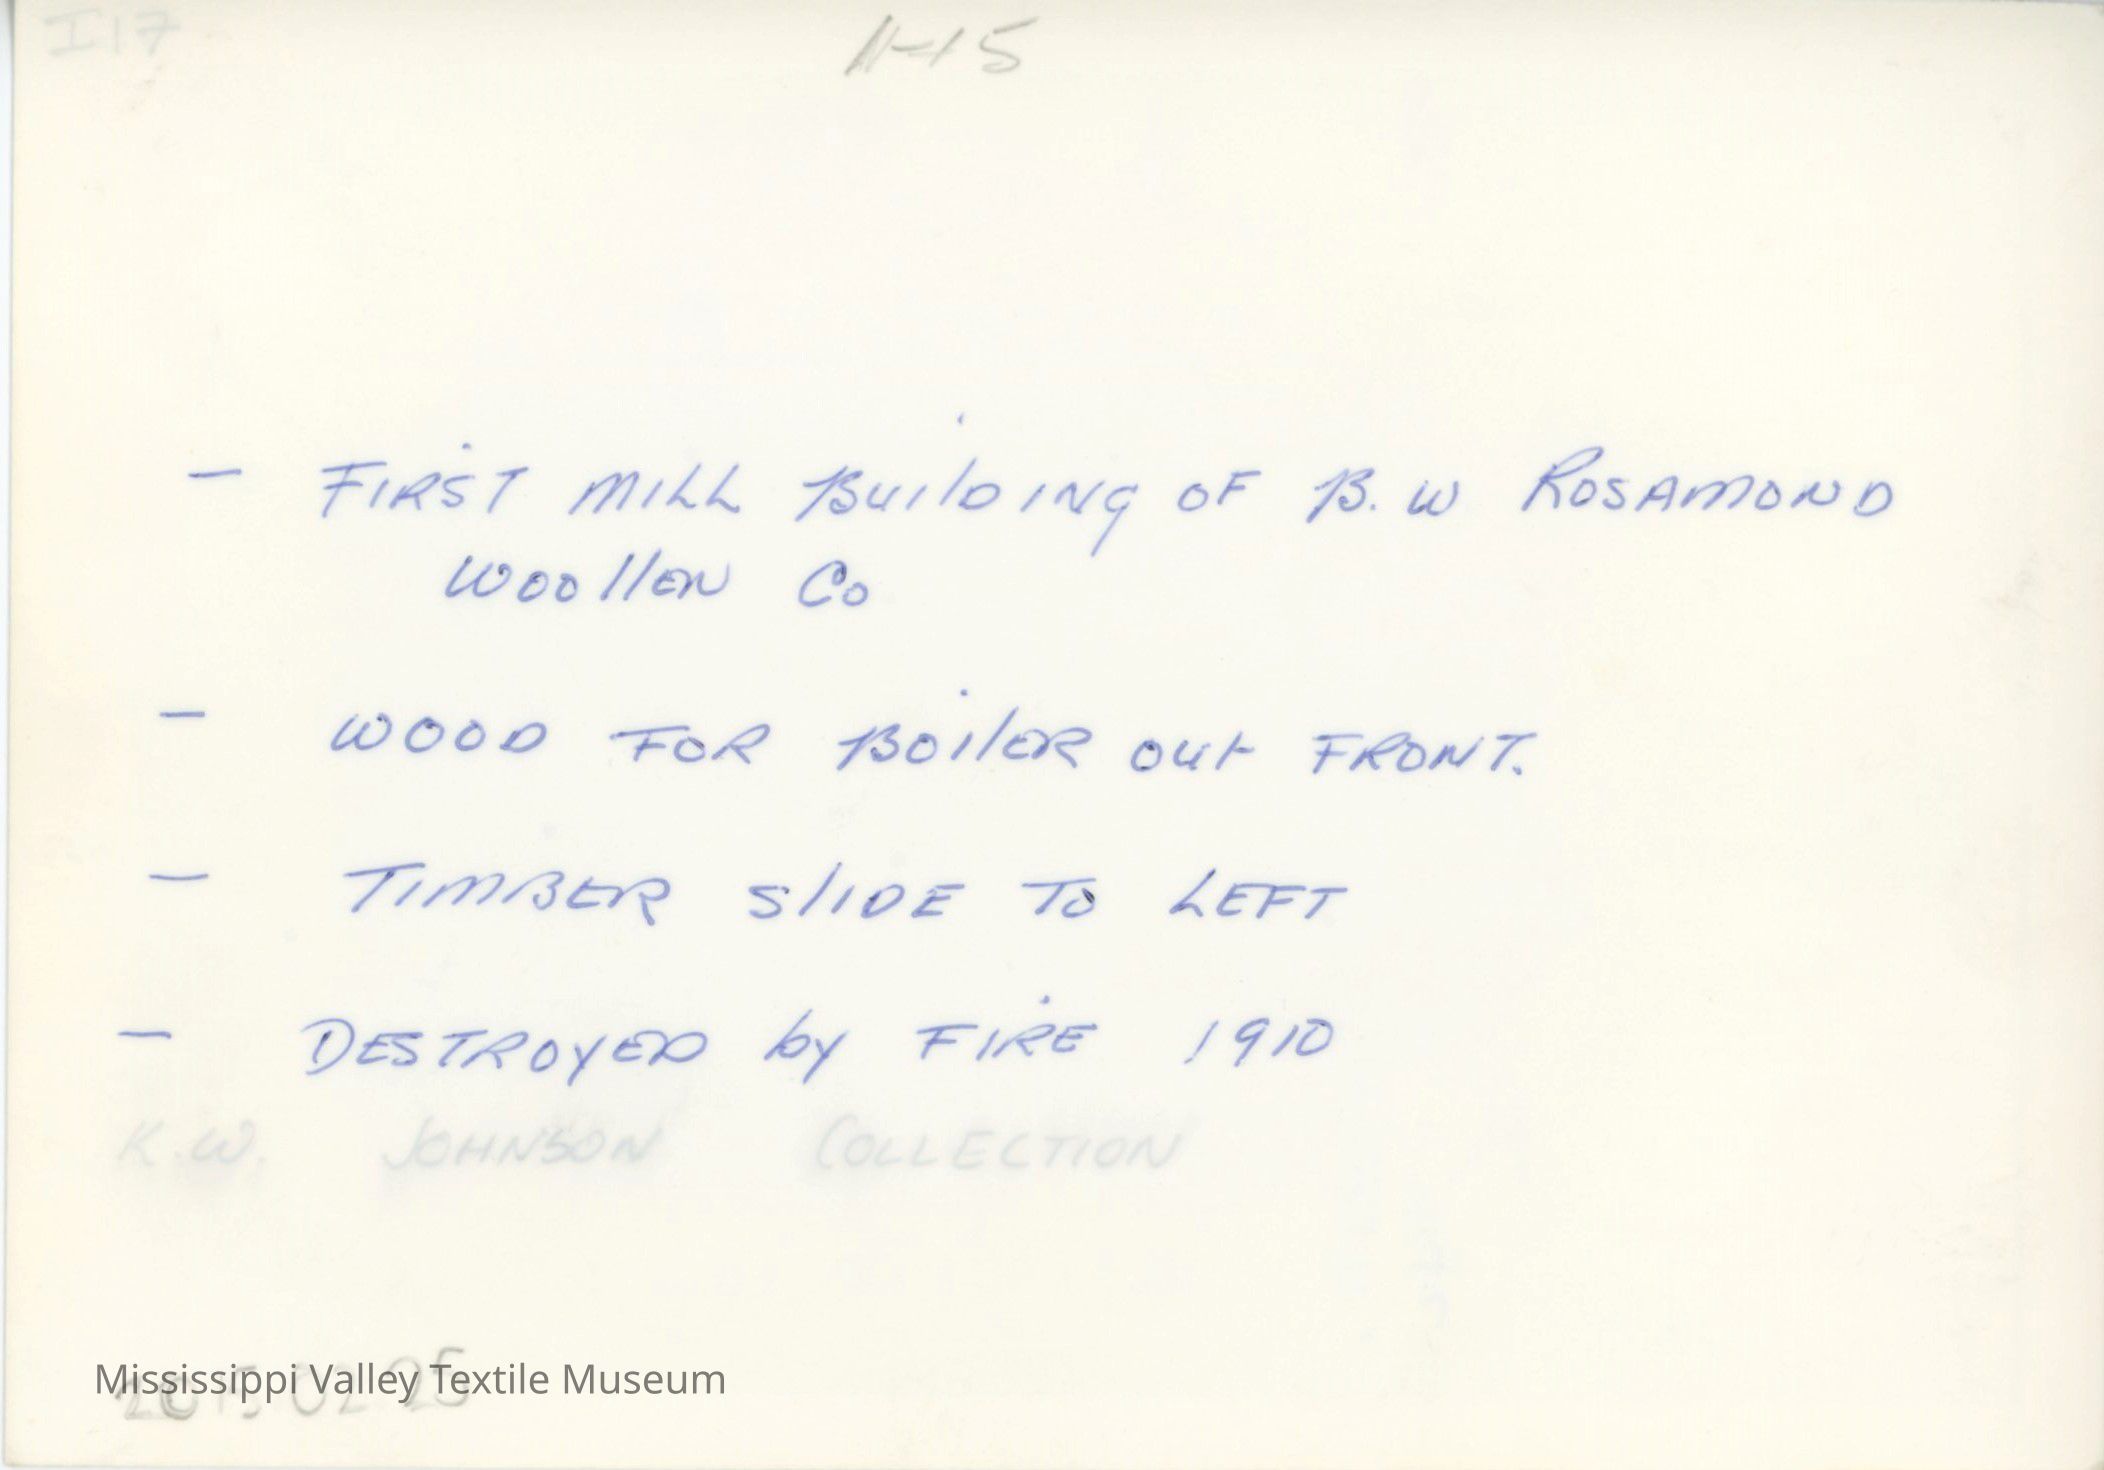 I17
- FIRST MILL BuilDING OF B. W ROSAMOND
WoollEN Co
- WOOD FOR BoilER out FRONT.
- TIMBER SlIDE TO LEFT
- DESTROYED by FIRE 1910
K.W. JOHNSON COLLECTION
Mississippi Valley Textile Museum